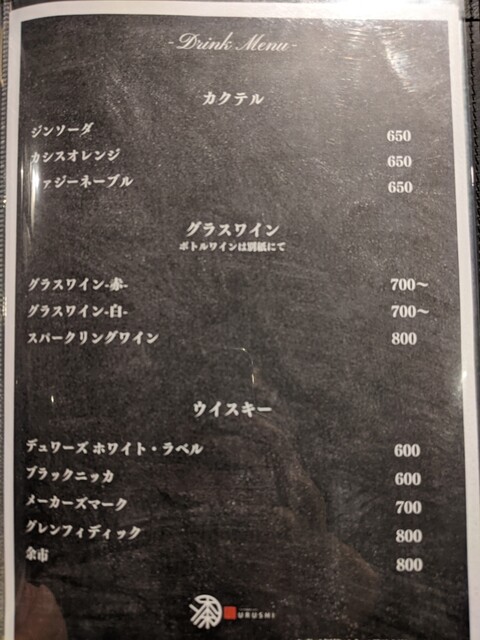 -Drink Menu-
カクテル
ジンソーダ 650
カシスオレンジ 650
ァジーネーブル 650
グラスワイン
ボトルワインは別紙にて
グラスワイン-赤- 700～
グラスワイン-白- 700～
スパークリングワイン 800
ウイスキー
デュワーズ ホワイト・ラベル 600
ブラックニッカ 600
メーカーズマーク 700
グレンフィディック 800
余市 800
URUSHI